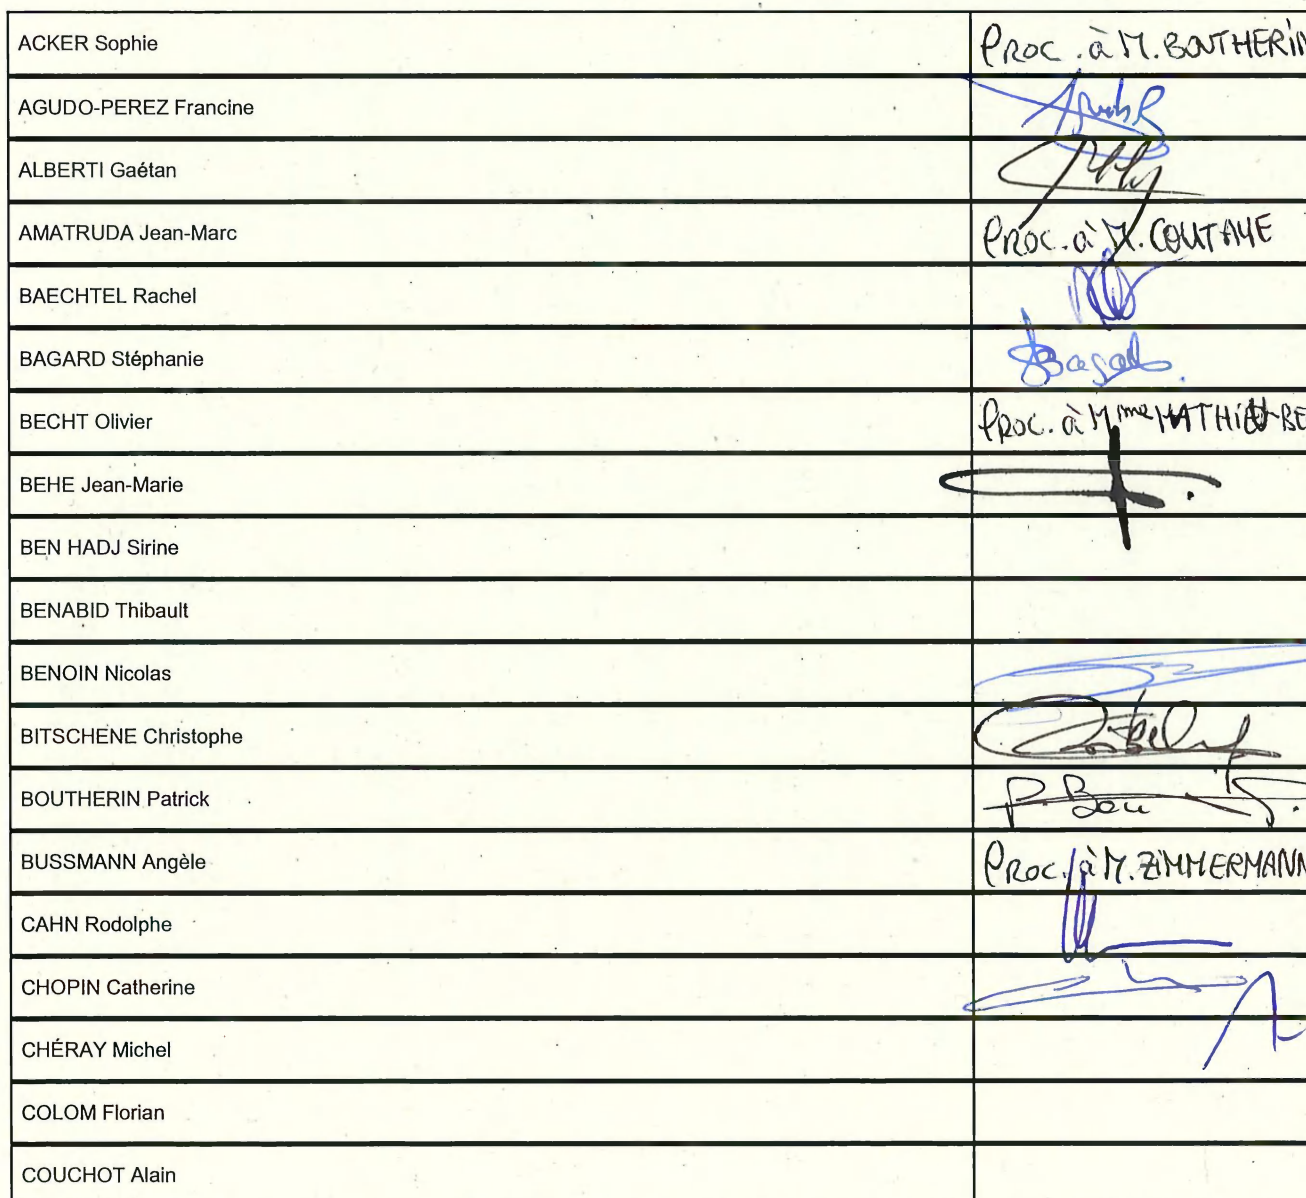 ACKER Sophie
Proc. à M. BOUTHERIN
AGUDO-PEREZ Francine
ALBERTI Gaétan
AMATRUDA Jean-Marc
Proc. à M. COUTAYE
BAECHTEL Rachel
BAGARD Stéphanie
BECHT Olivier
Proc. à Mme MATHIEU-BE
BEHE Jean-Marie
BEN HADJ Sirine
BENABID Thibault
BENOIN Nicolas
BITSCHENE Christophe
BOUTHERIN Patrick
P. Bou
BUSSMANN Angèle
Proc. à M. ZIMMERMANN
CAHN Rodolphe
CHOPIN Catherine
CHÉRAY Michel
COLOM Florian
COUCHOT Alain